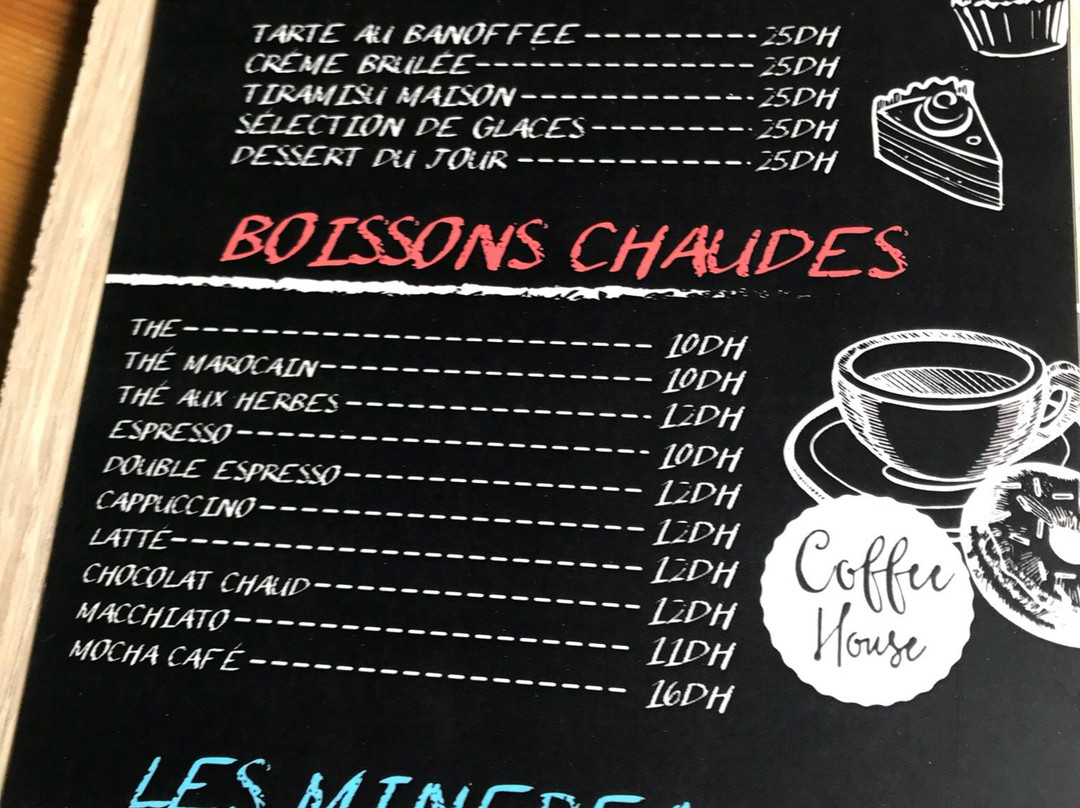 TARTE AU BANOFFEE ----------------- 25DH
CRÈME BRULÉE ----------------- 25DH
TIRAMISU MAISON ----------------- 25DH
SÉLECTION DE GLACES ----------------- 25DH
DESSERT DU JOUR ----------------- 25DH
BOISSONS CHAUDES
THE ----------------- 10DH
THÉ MAROCAIN ----------------- 10DH
THÉ AUX HERBES ----------------- 12DH
ESPRESSO ----------------- 10DH
DOUBLE ESPRESSO ----------------- 12DH
CAPPUCCINO ----------------- 12DH
LATTÉ ----------------- 12DH
CHOCOLAT CHAUD ----------------- 12DH
MACCHIATO ----------------- 11DH
MOCHA CAFÉ ----------------- 16DH
Coffee
House
LES